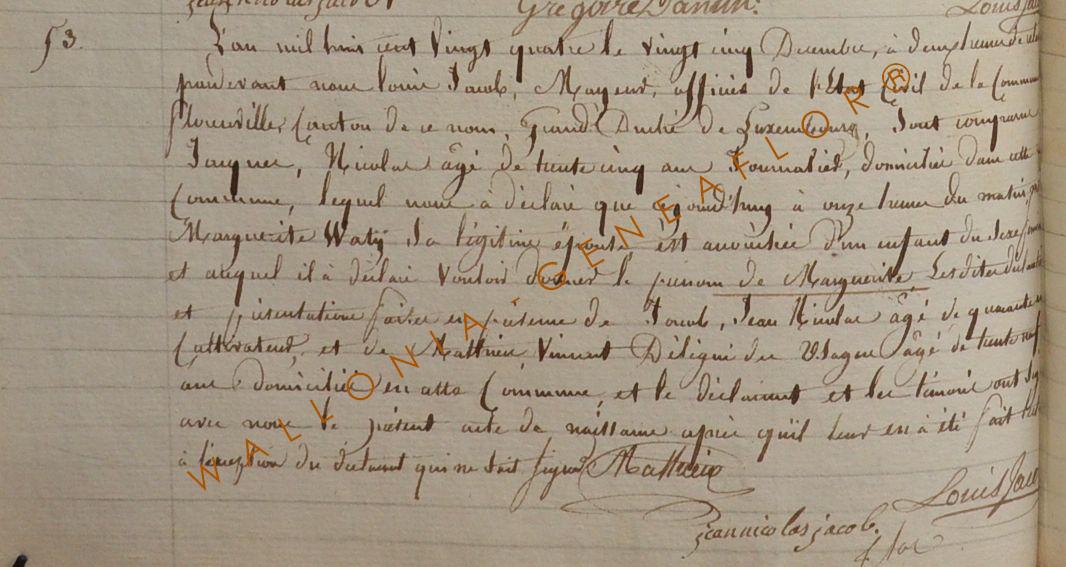 Grégoire Damin.
Louis Jac
53.
L'an mil huit cent vingt quatre le vingt cinq Decembre, à deux heures de
pardevant nous Louis Jacob, Mayeur, officier de l'Etat Civil de la Commune
florenville, Canton de ce nom, Grand Duché de Luxembourg, sont comparu
Jaques, Nicolas âgé de trente cinq ans Journalier, domicilié dans cette
Commune, lequel nous à déclaré que ajourd'huy à onze heures du matin
Marguerite Watÿ sa légitime épouse est accouchée d'un enfant du sexe
et auquel il a déclaré vouloir donner le prenom de Marguerite. Lesdites
et présentations faites en présence de Jacob, Jean Nicolas âgé de quarante
Cultivateur, et de Mathieu Vincent Déligné du Usagne âgé de trente neuf
ans domiciliés en cette Commune, et le déclarant et les témoins ont
avec nous le présent acte de naissance après qu'il leur en a été fait
à l'exception du déclarant qui ne sait signer Mathieu
Louis Jac
jeannicolas jacob.
WALLONIA.GENEAFLORR®